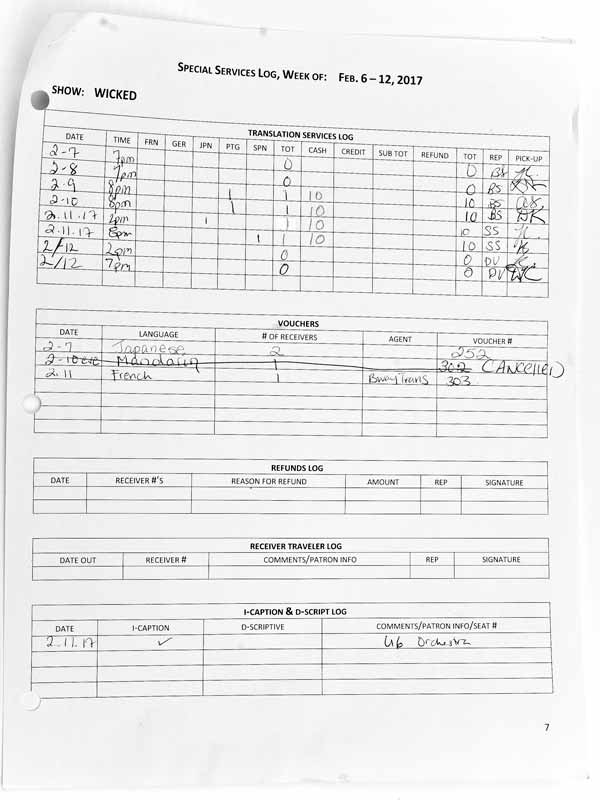 SPECIAL SERVICES LOG, WEEK OF: FEB. 6 – 12, 2017
SHOW: WICKED
TRANSLATION SERVICES LOG
DATE TIME FRN GER JPN PTG SPN TOT CASH CREDIT SUB TOT REFUND TOT REP PICK-UP
2-7 7pm 0 0 BS
2-8 7pm 0 0 BS
2-9 8pm | 1 10 10 BS
2-10 8pm | 1 10 10 BS
2.11.17 2pm | 1 10 10 SS
2.11.17 8pm | 1 10 10 SS
2/12 2pm 0 0 DV
2/12 7pm 0 0 DV
VOUCHERS
DATE LANGUAGE # OF RECEIVERS AGENT VOUCHER #
2-7 Japanese 2 252
2-10 Mandarin 1 302 CANCELLED
2.11 French 1 BwayTrans 303
REFUNDS LOG
DATE RECEIVER #'S REASON FOR REFUND AMOUNT REP SIGNATURE
RECEIVER TRAVELER LOG
DATE OUT RECEIVER # COMMENTS/PATRON INFO REP SIGNATURE
I-CAPTION & D-SCRIPT LOG
DATE I-CAPTION D-SCRIPTIVE COMMENTS/PATRON INFO/SEAT #
2.11.17 ✓ Orchestra
7